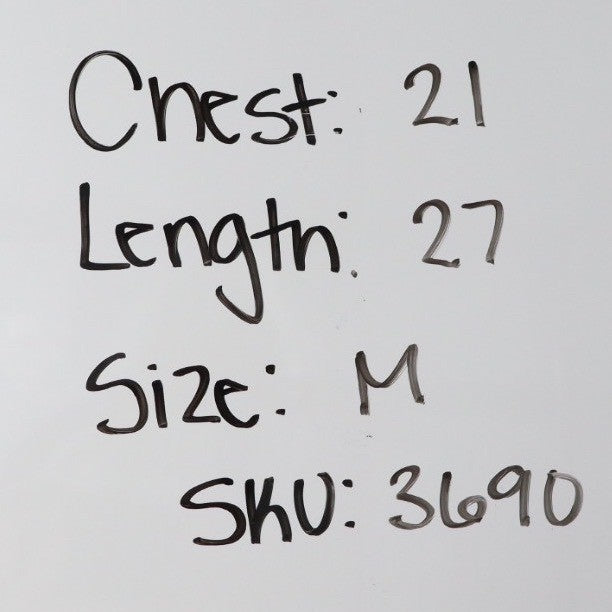 Chest: 21
Length: 27
Size: M
SKU: 3690